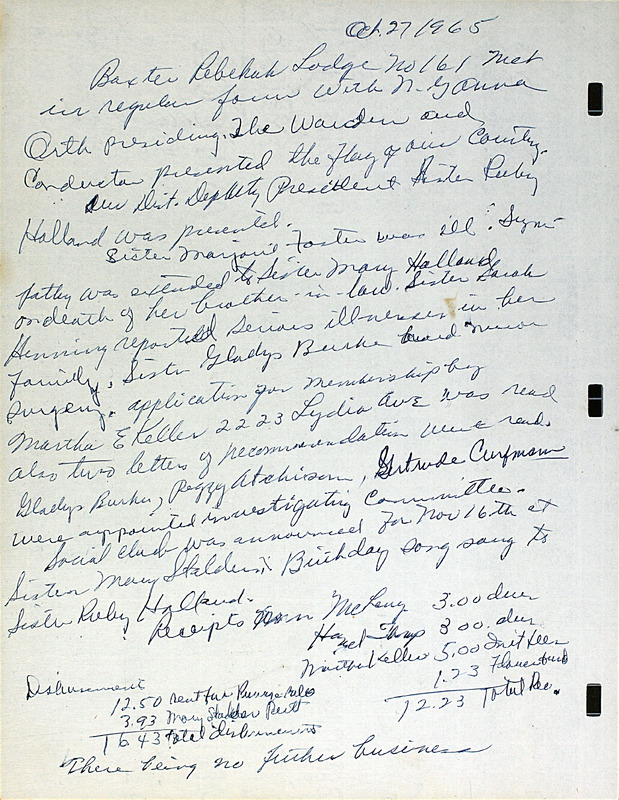 Oct 27 1965
Baxter Rebekah Lodge No 161 met
in regular form with N. G. Anna
Orth presiding. The Warden and
Conductor presented the Flag of our Country.
Our Dist. Deputy President Sister Ruby
Holland was presented.
Sister Marjorie Foster was ill. Sym-
pathy was extended to Sister Mary Holland
on death of her brother-in-law. Sister Sarah
Henning reported serious illnesses in her
family. Sister Gladys Burke minor
surgery. application for membership by
Martha E Keller 2223 Lydia Ave was read
also two letters of recommendation were read.
Gladys Burke, Peggy Atchison, Gertrude Curfman
were appointed investigating Committee.
Social club was announced for Nov 16th at
Sister Mary Stalders. Birthday song sang to
Sister Ruby Holland.
Receipts 3.00 dues
3 00. dues
Martha Keller 5.00 Init fee
1.23 Flower fund
12.23 Total Rec.
Disbursment
12.50 rent for Rummage Sale
3.93 Mary Stalder
16.43 total disbursments
There being no further business